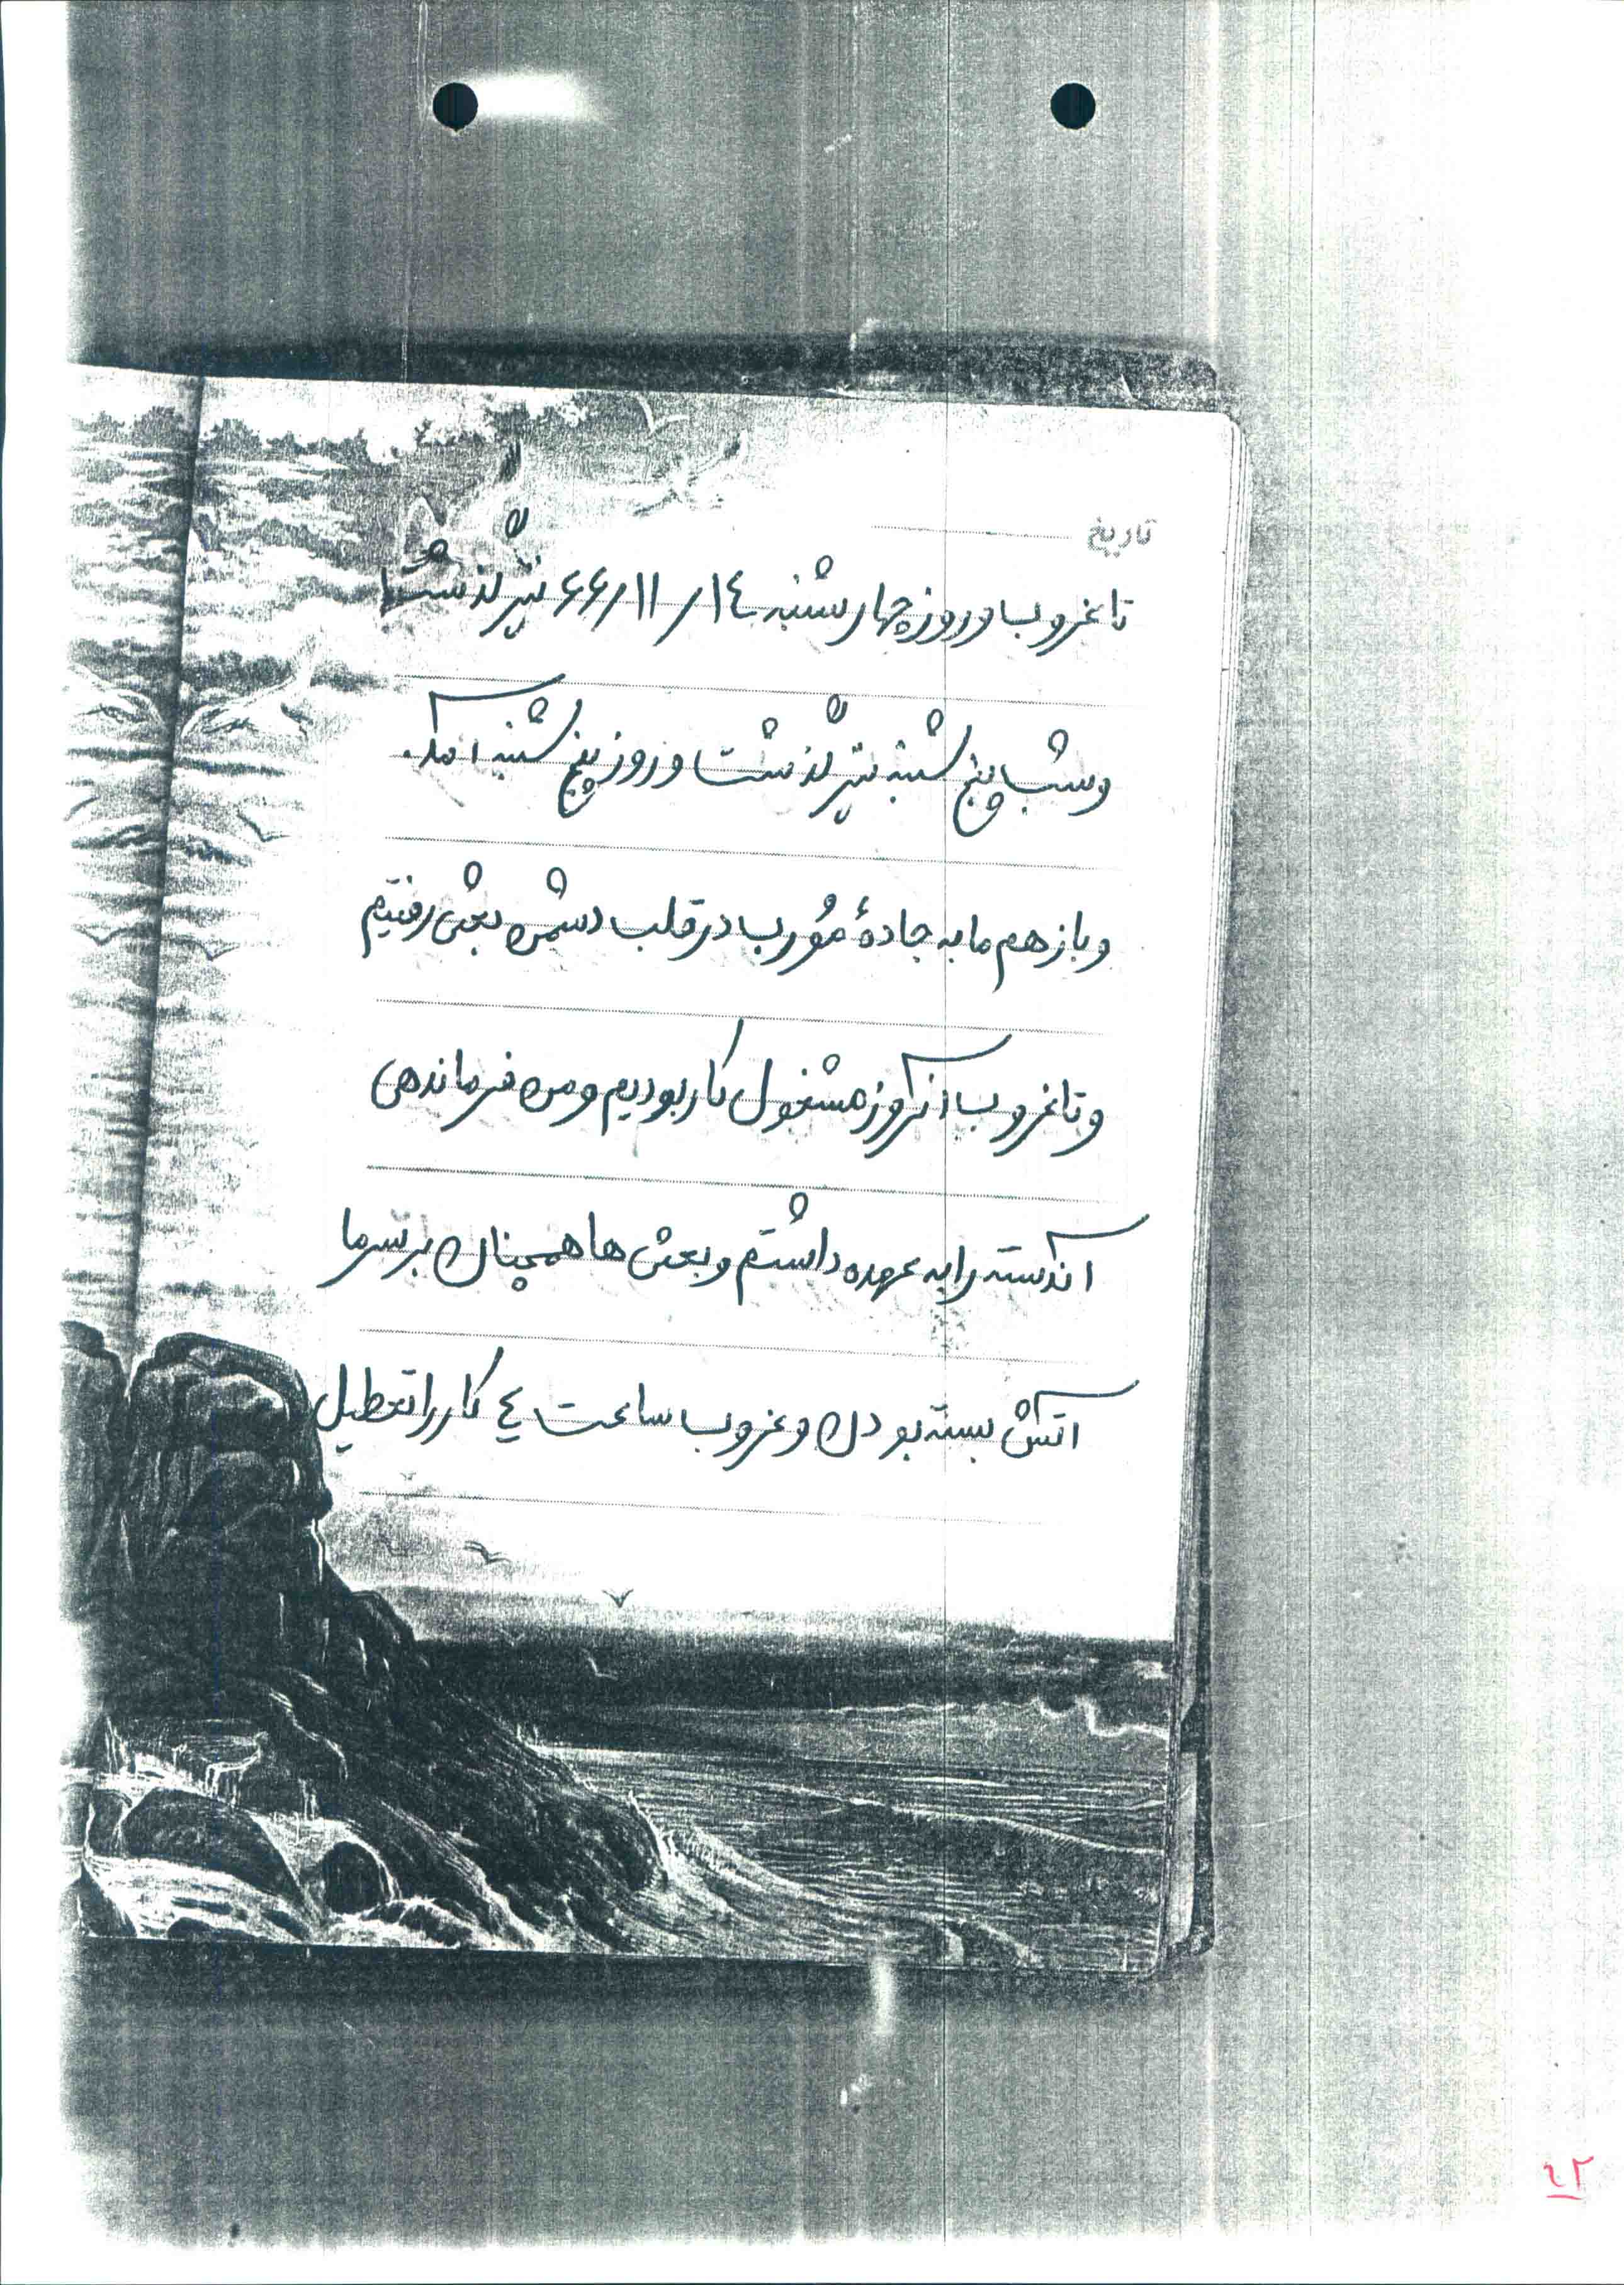 تاریخ
تا غروب و روز چهارشنبه ١٤/١١/۶۶ نیز گذشت
و شب پنج شنبه نیز گذشت و روز پنج شنبه آمد.
و باز هم ما به جادهٔ مُورب در قلب دشمن بعثی رفتیم
و تا غروب آنروز مشغول کار بودیم و من فرماندهی
آندسته را به عهده داشتم و بعثی ها همچنان بر سر ما
آتش بسته بودن و غروب ساعت ٤ کار را تعطیل